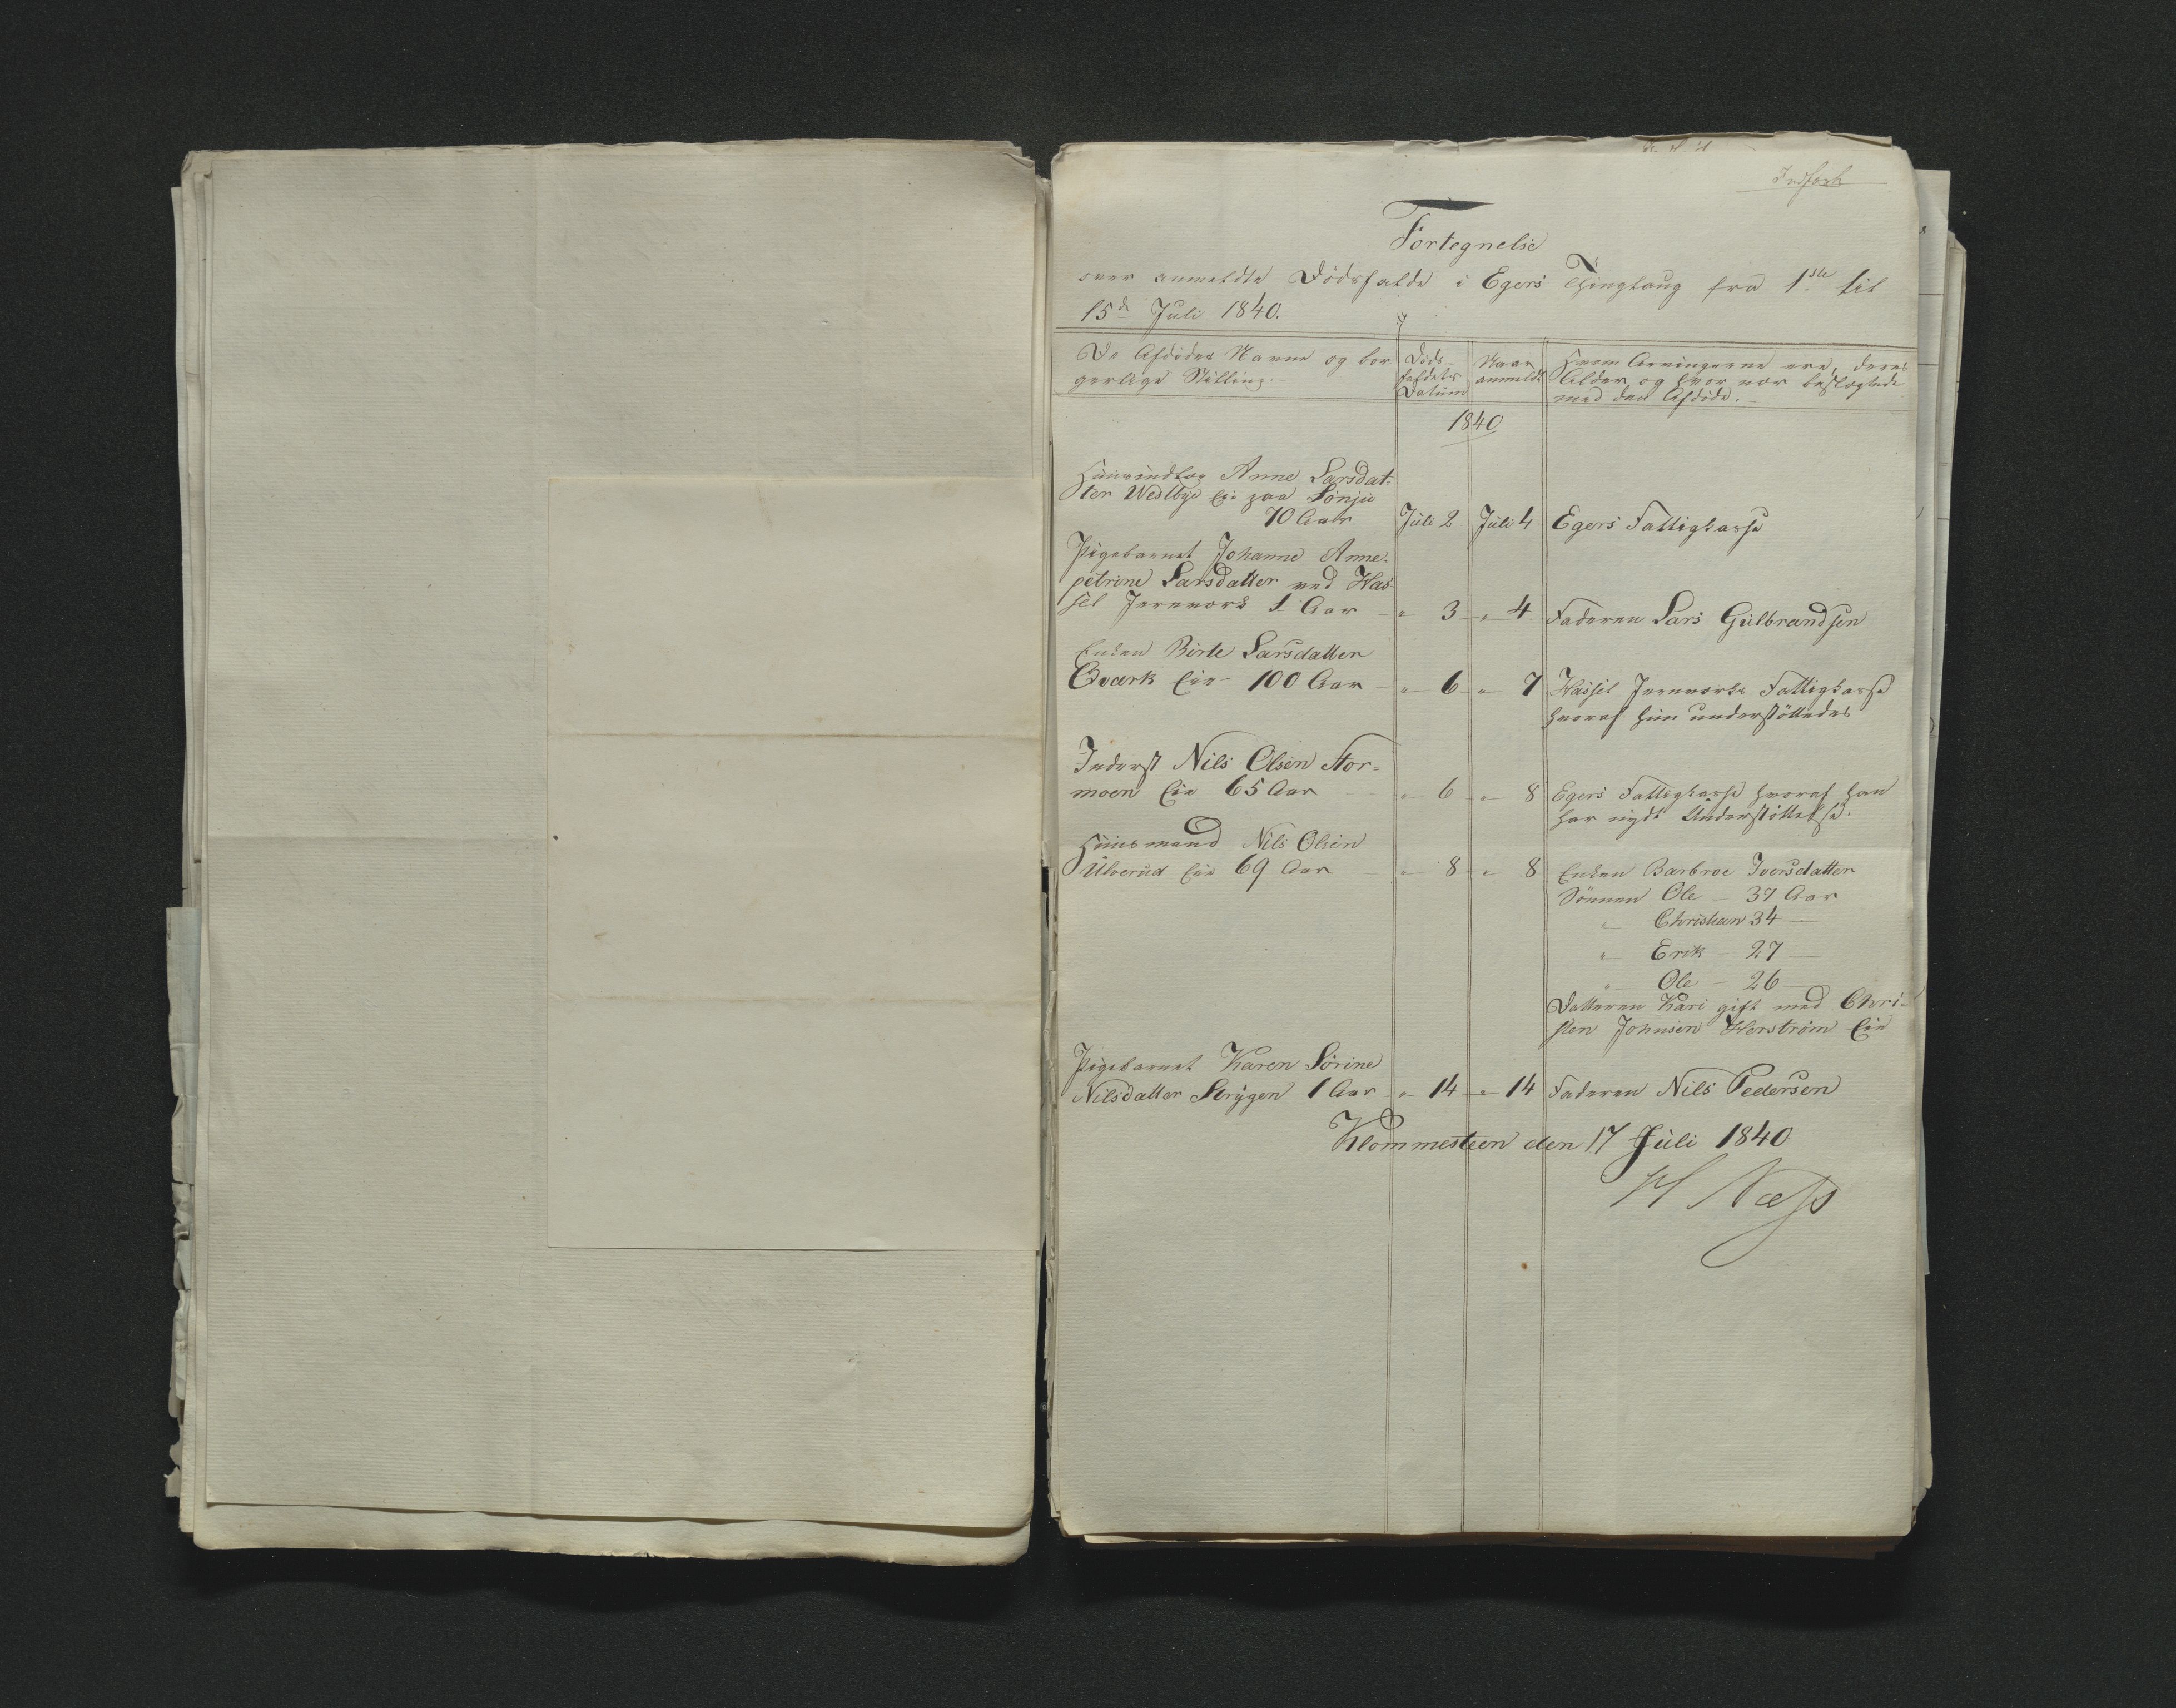 Indført
Fortegnelse
over anmeldte Dödsfalde i Egers Thinglaug fra 1ste til
15de Juli 1840.
De Afdödes Navne og bor
gerlige Stilling.
Döds
faldets
Datum
Naar
anmeldt
Hvem Arvingerne ere, deres
Alder, og hvor nær beslægtede
med den Afdöde.
1840
Anne Larsdat-
ter Wedbye Eie paa Sönju
70 Aar Juli 2 Juli 4 Egers Fattigkasse
Pigebarnet Johanne Anne-
petrine Larsdatter ved Has-
sel Jernverk 1 Aar " 3 " 4 Faderen Lars Gulbrandsen
Enken Birte Larsdatter
Qværk Eie 100 Aar " 6 " 7 Hassel Jernverks Fattigkasse
hvoraf hun understöttedes
Inderst Nils Olsen Mor-
moen Eie 65 Aar " 6 " 8 Egers Fattigkasse hvoraf han
har nydt Understöttelse.
Huusmand Nils Olsen
Ulverud Eie 69 Aar " 8 " 8 Enken Barbroe Iversdatter
Sönnen Ole – 37 Aar
" Christian 34 —
" Erik – 27 —
" Ole – 26 —
Datteren Kari gift med Chri-
sten Johnsen Werström Eie
Pigebarnet Karen Sörine
Nilsdatter Krygen 1 Aar " 14 " 14 Faderen Nils Pedersen
Klommesteen den 17 Juli 1840
H Næss